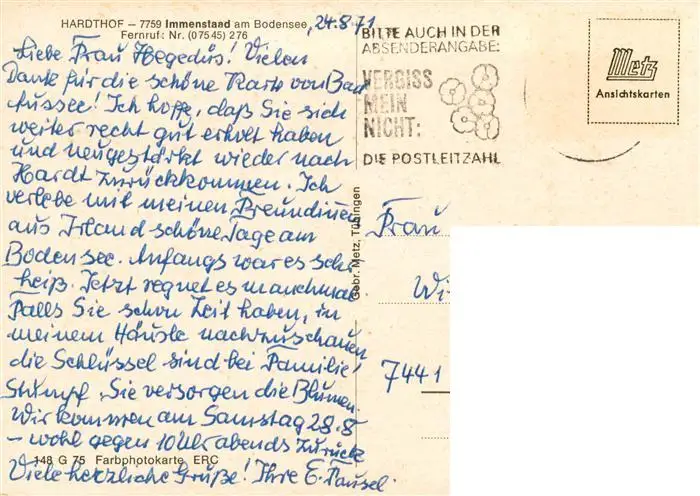 HARDTHOF – 7759 Immenstaad am Bodensee, 24.8.71
Fernruf: Nr. (07545) 276
Liebe Frau Hegedüs! Vielen
Dank für die schöne Karte von Bad
Aussee! Ich hoffe, daß Sie sich
weiter recht gut erholt haben
und neugestärkt wieder nach
Hardt zurückkommen. Ich
verlebe mit meinen Freundinnen
aus Irland schöne Tage am
Bodensee. Anfangs war es sehr
heiß. Jetzt regnet es manchmal.
Falls Sie schon Zeit haben, in
meinem Häusle nachzuschauen
die Schlüssel sind bei Familie
Stumpf. Sie versorgen die Blumen.
Wir kommen am Samstag 28.8
– wohl gegen 10 Uhr abends zurück
148 G 75 Farbphotokarte ERC
Viele herzliche Grüße! Ihre E.
Gebr. Metz, Tübingen
BITTE AUCH IN DER
ABSENDERANGABE:
VERGISS
MEIN
NICHT:
DIE POSTLEITZAHL
Metz
Ansichtskarten
Frau
Wi
7441